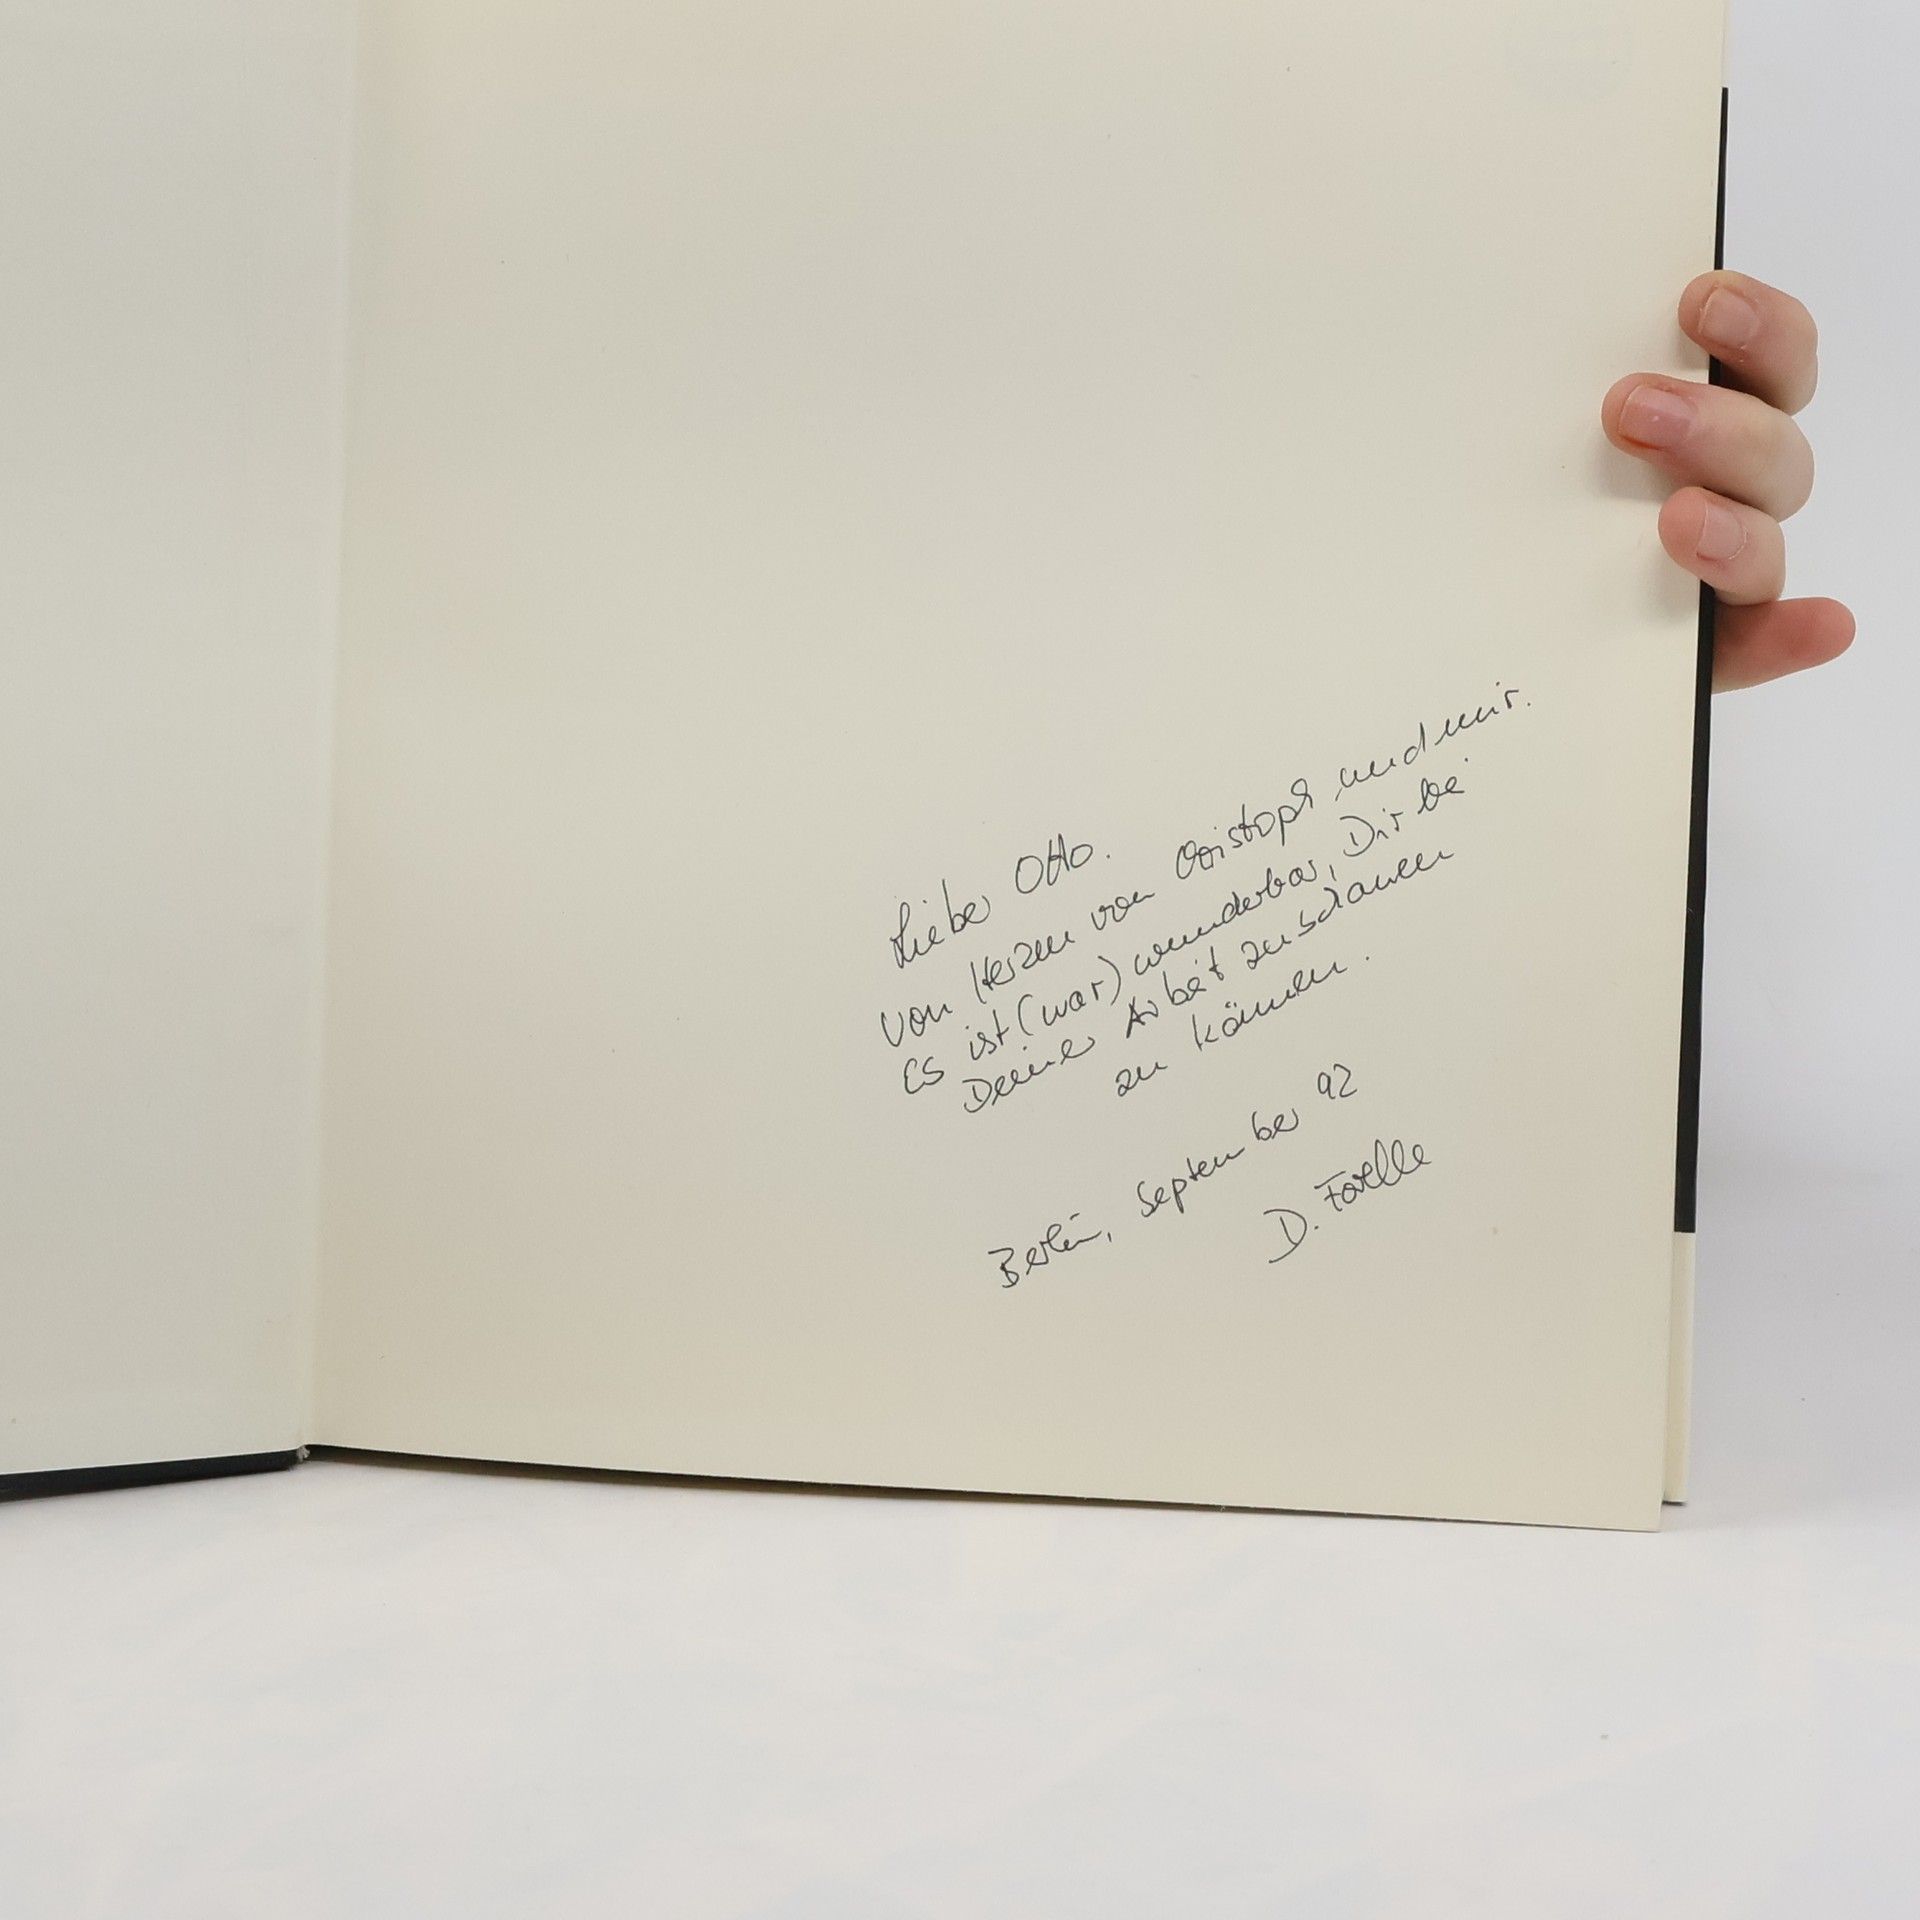 Lieber Otto.
von Herzen von Christoph und mir.
Es ist (war) wunderbar, Dir bei
Deiner Arbeit zuschauen
zu können.
Berlin, September 92
D. Forelle